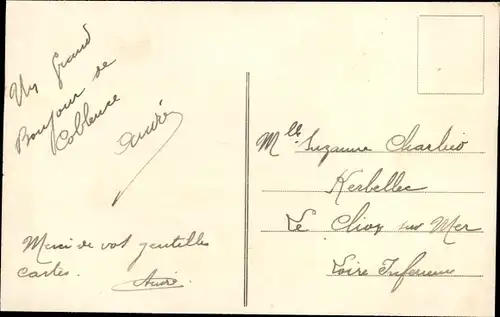 Un grand
Bonjour de
Coblence
André
Merci de vos gentilles
cartes.
André
Mlle Suzanne
Kerbellec
Le Clion sur Mer
Loire Inférieure